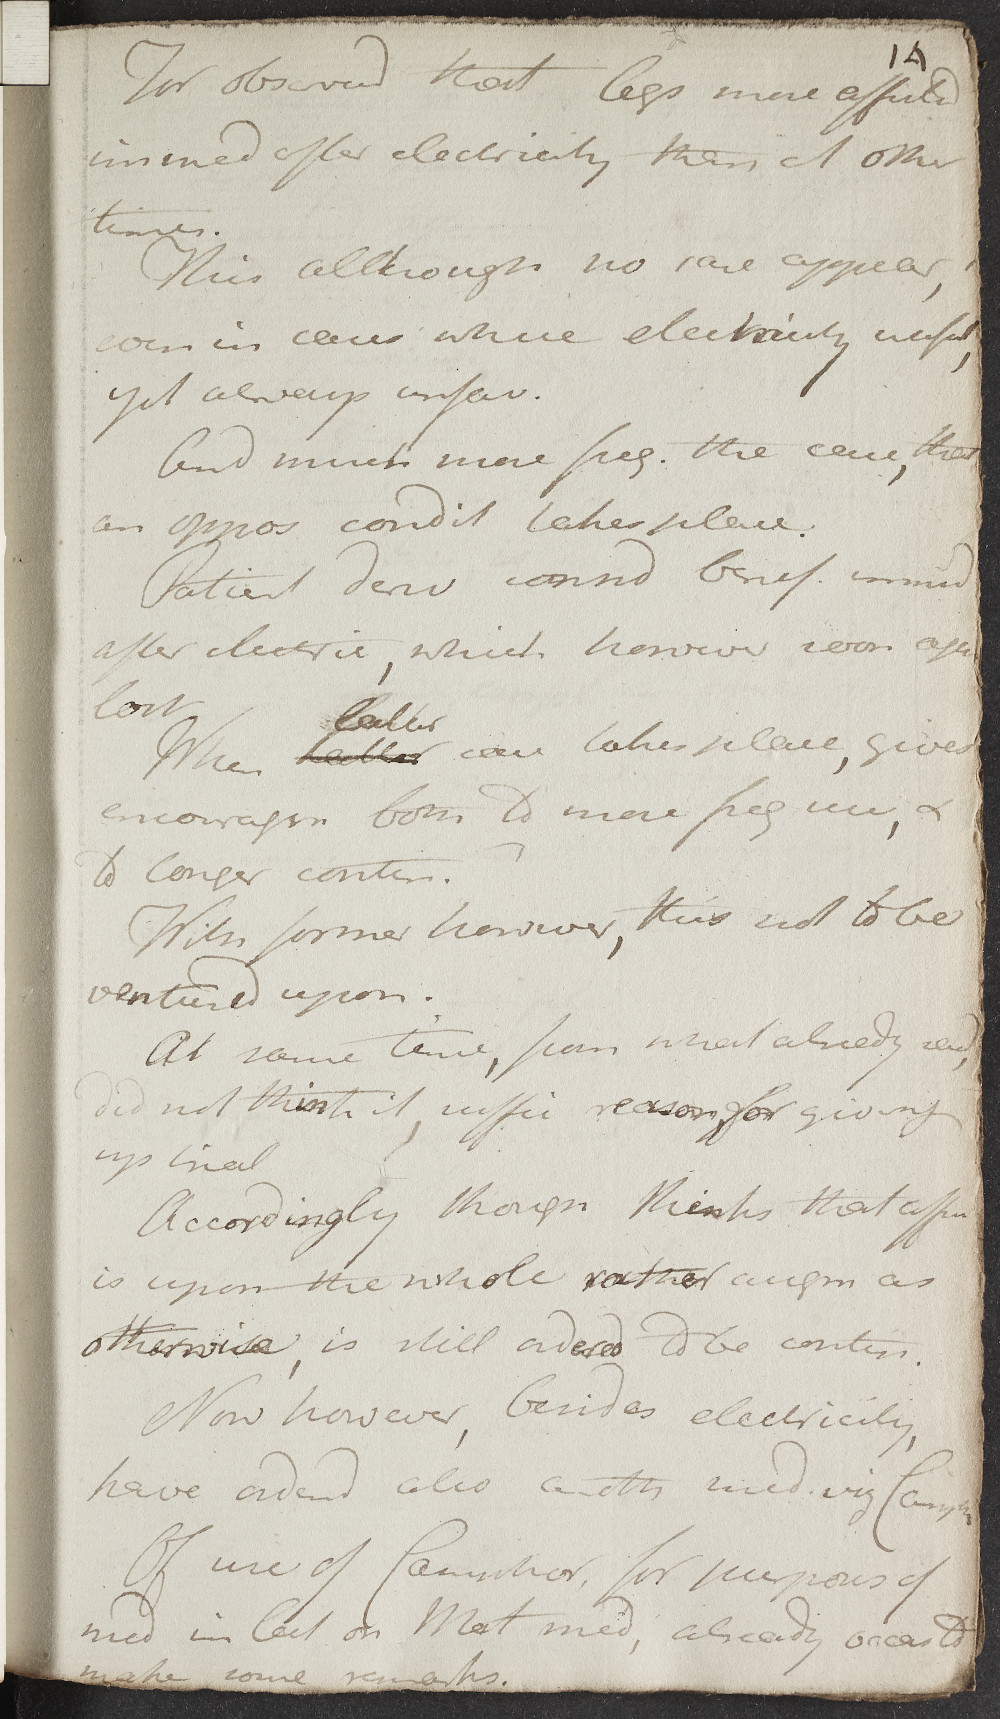 14
For observed that legs more affected
immed after electricity than at other
times.
This although no rare appear,
even in cases where electricity useful,
yet always unfav.
And much more freq. the case, that
an oppos condit takes place.
Patient deriv consid benef. immed
after electric, which however soon again
lost
latter
When latter case takes place, gives
encouragem both to more freq use, &
to longer contin.
With former however, this not to be
ventured upon.
At same time, from what already said,
did not think it suffic reason, for giving
up trial
Accordingly though thinks that affec
is upon the whole rather augm as
otherwise, is still ordered to be contin.
Now however, besides electricity,
have ordered also anoth med. viz Camph
Of use of Camphor, for purposes of
med in lect on Mat med, already occas to
make some remarks.